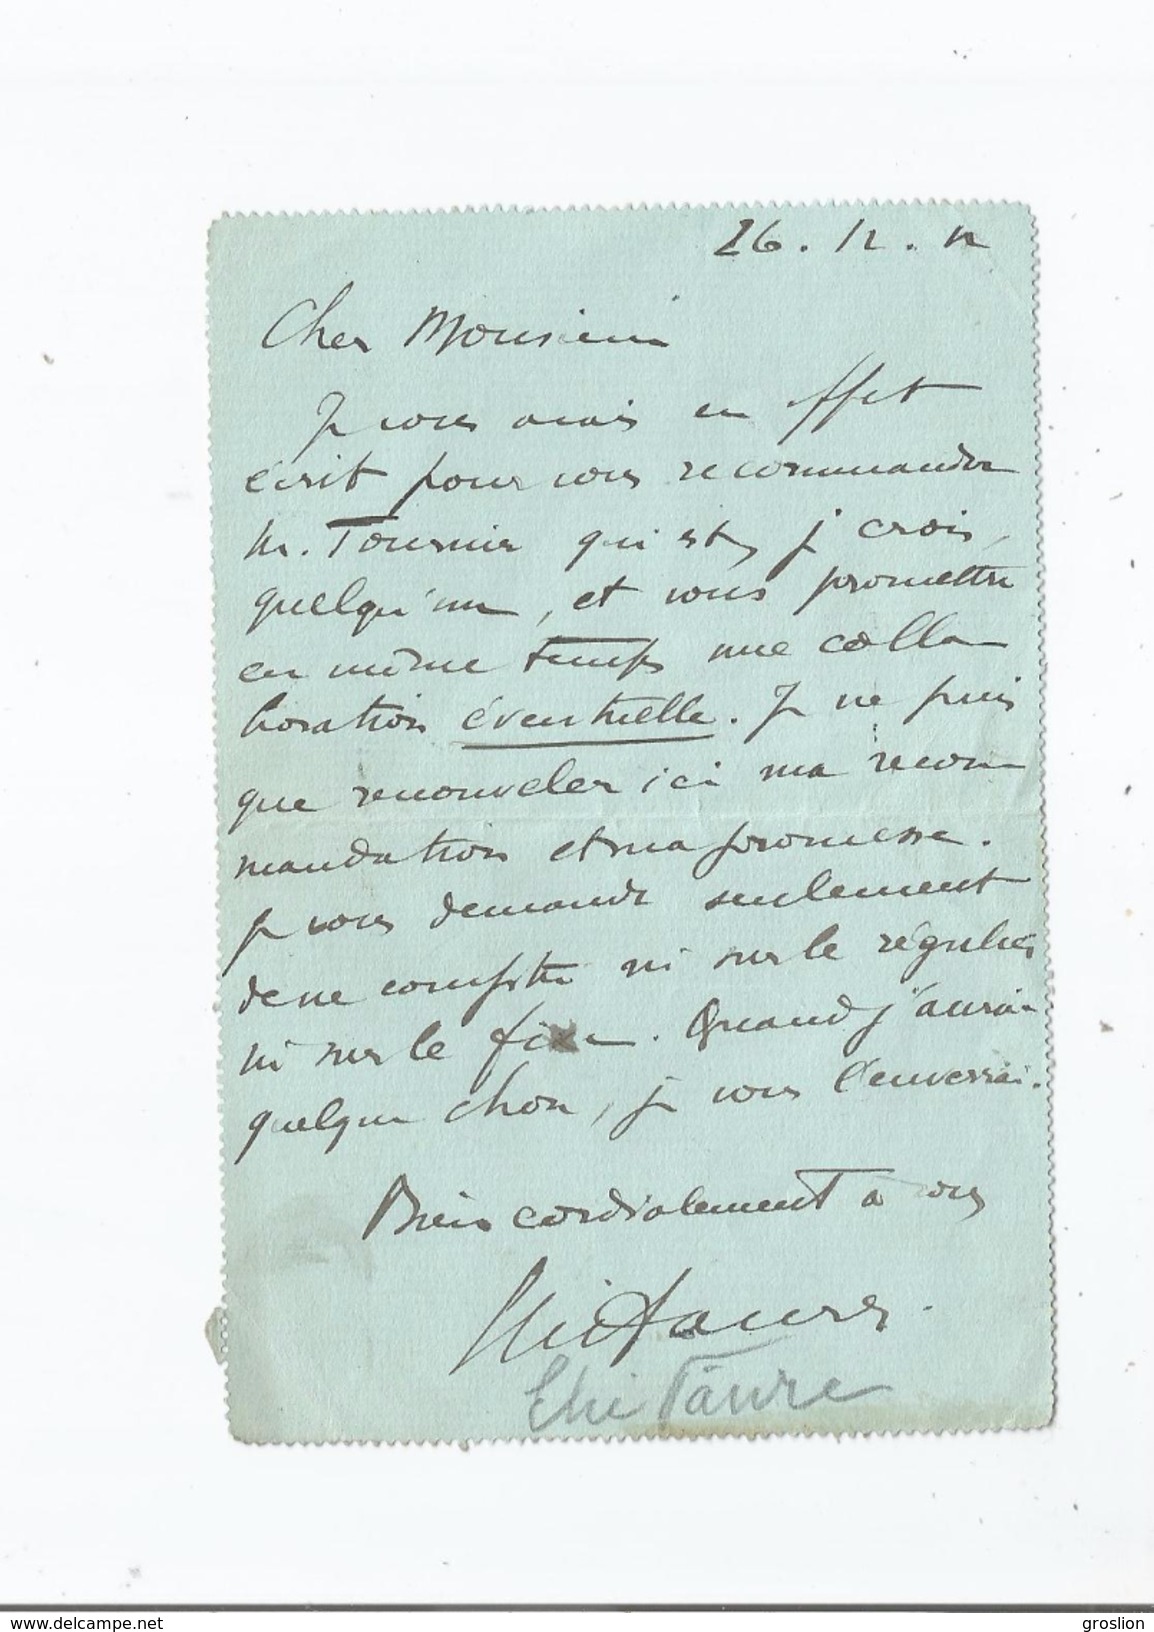 26. 12. 12
Cher Monsieur
Je vous avais en effet
écrit pour vous recommander
M. Tournier qui est, je crois,
quelqu'un, et vous promettre
en même temps une colla
boration éventuelle. Je ne puis
que renouveler ici ma recom
mandation et ma promesse.
Je vous demande seulement
de ne compter ni sur le régulier
ni sur le fixe. Quand j'aurai
quelque chose, je vous l'enverrai.
Bien cordialement à vous
Elie Faure.
Elie Faure
delcampe.net
groslion